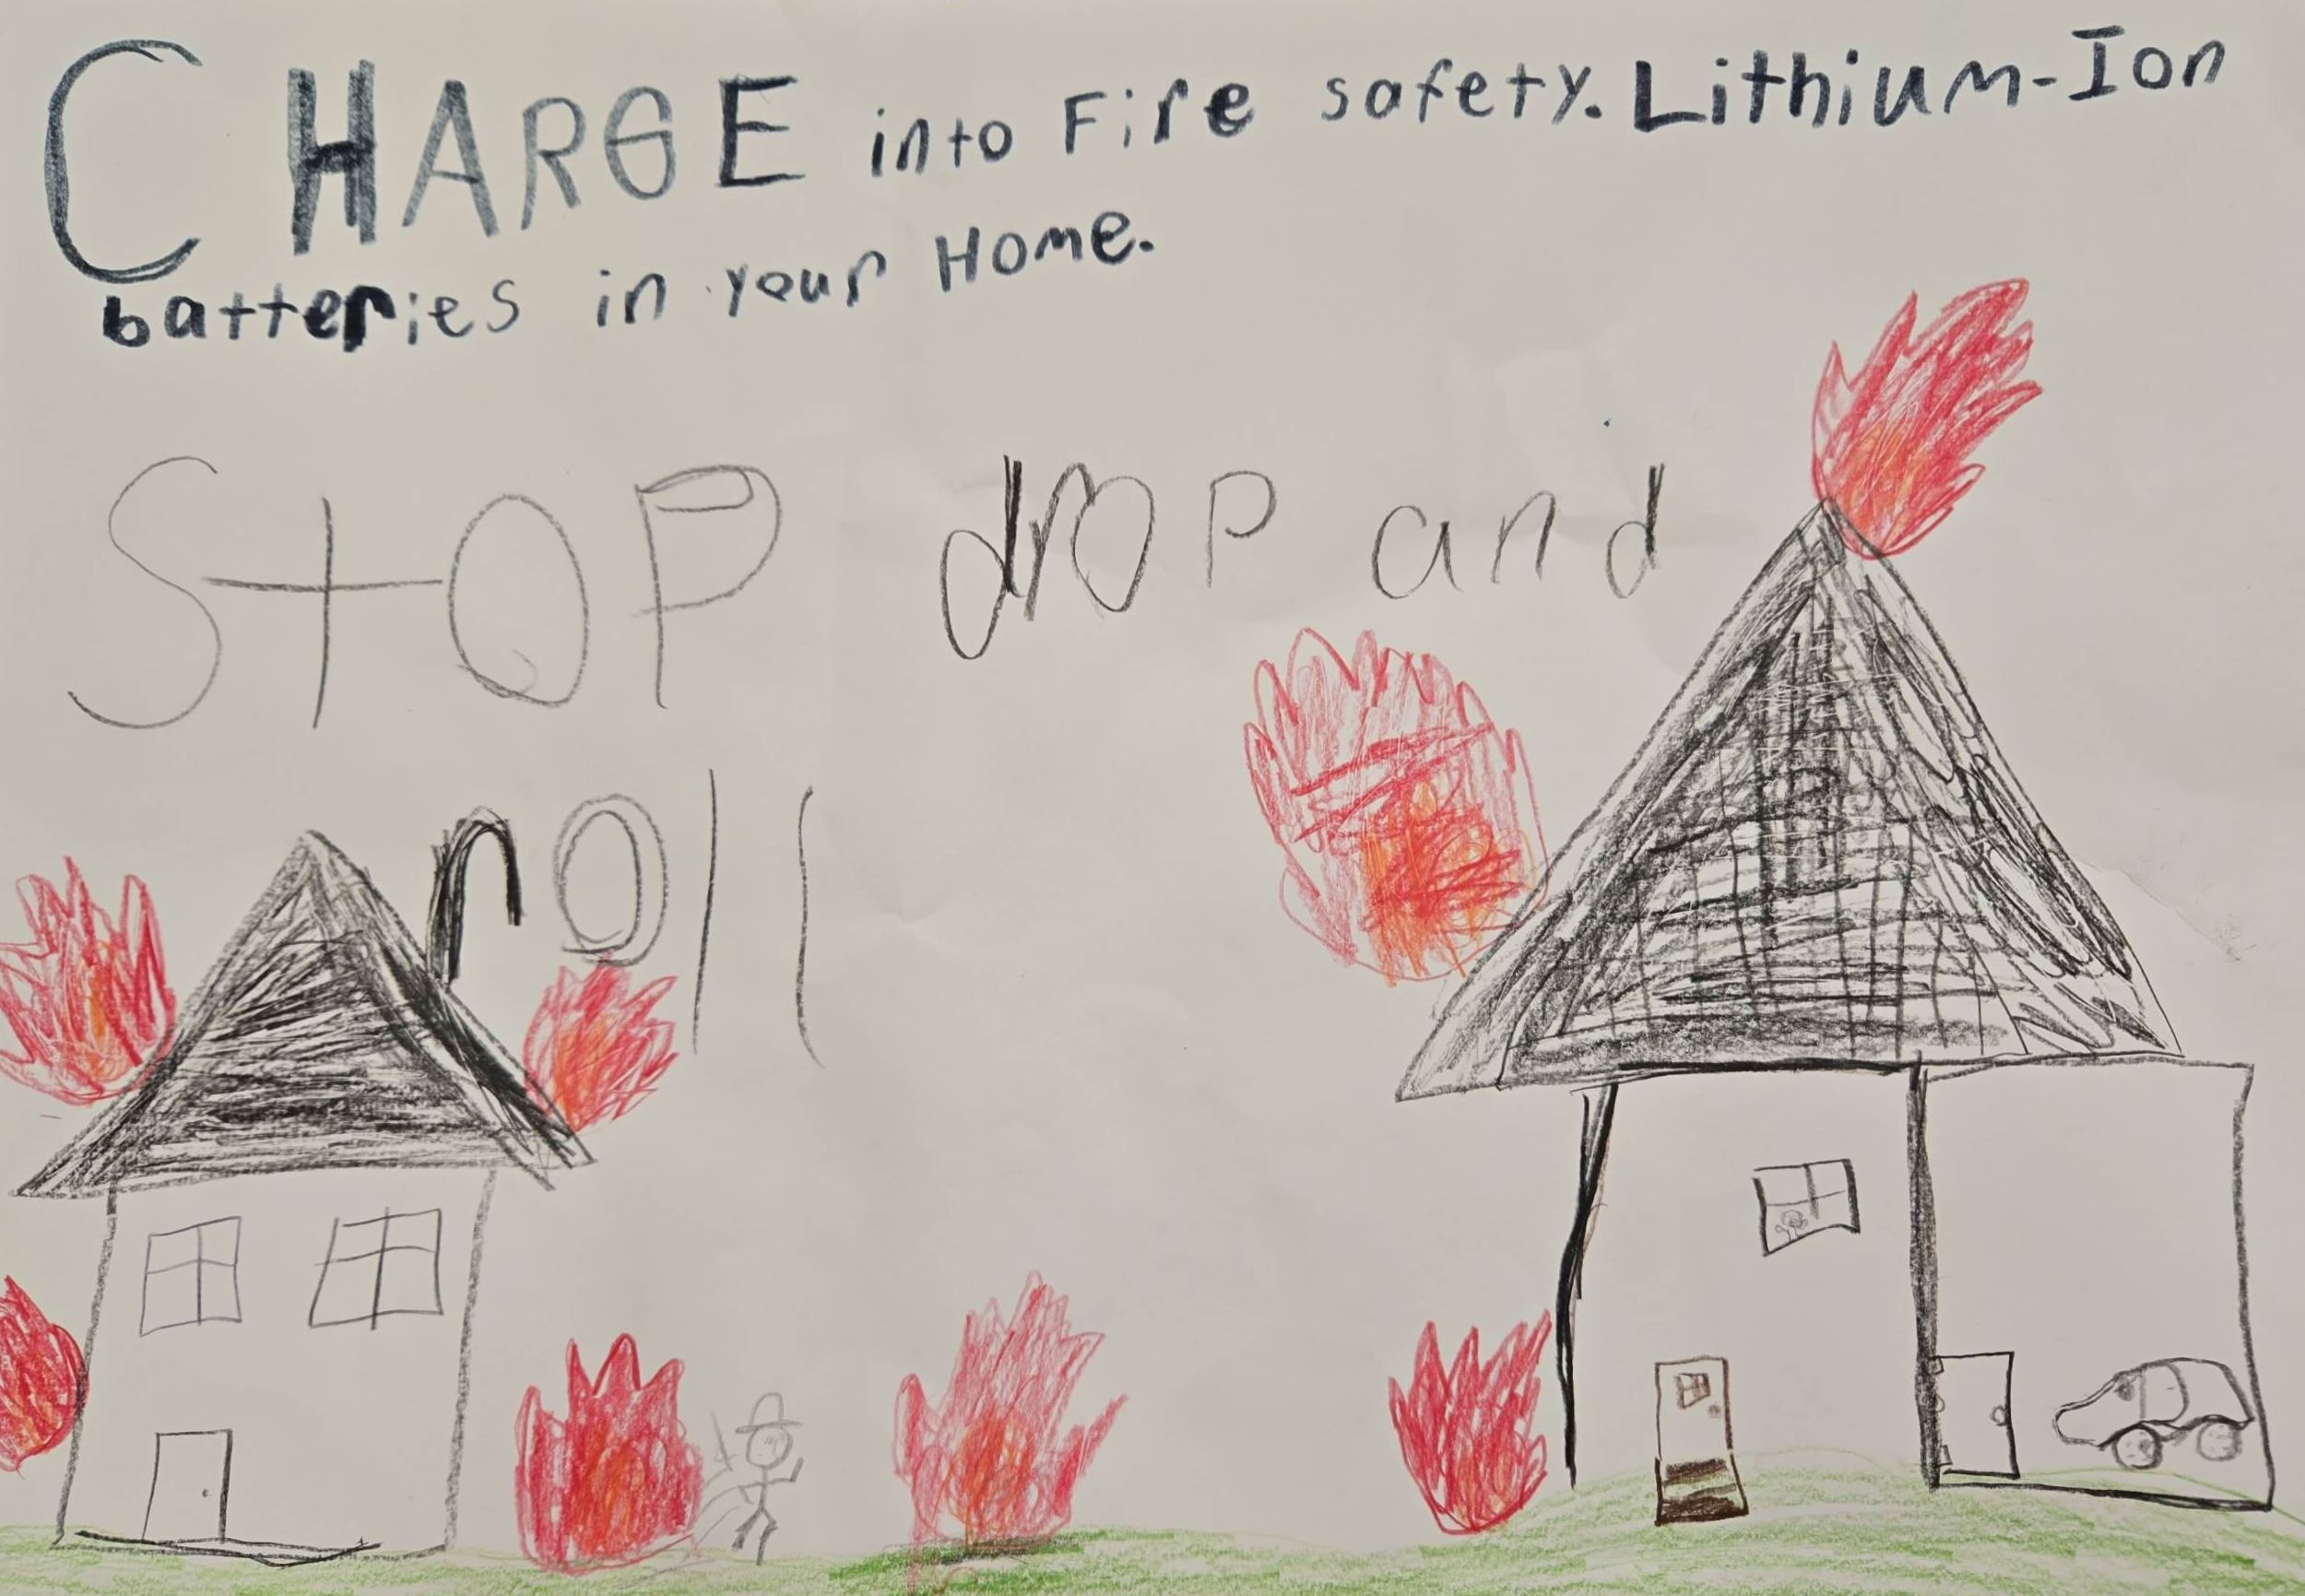 CHARGE into Fire safety. Lithium-Ion
batteries in your Home.
StOP drop and
roll